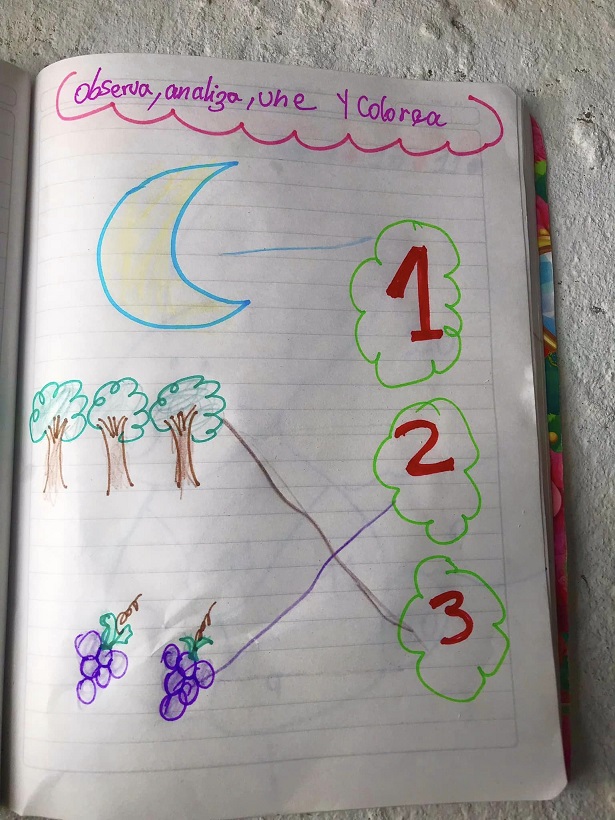 Observa, analiza, une y Colorea
1
2
3